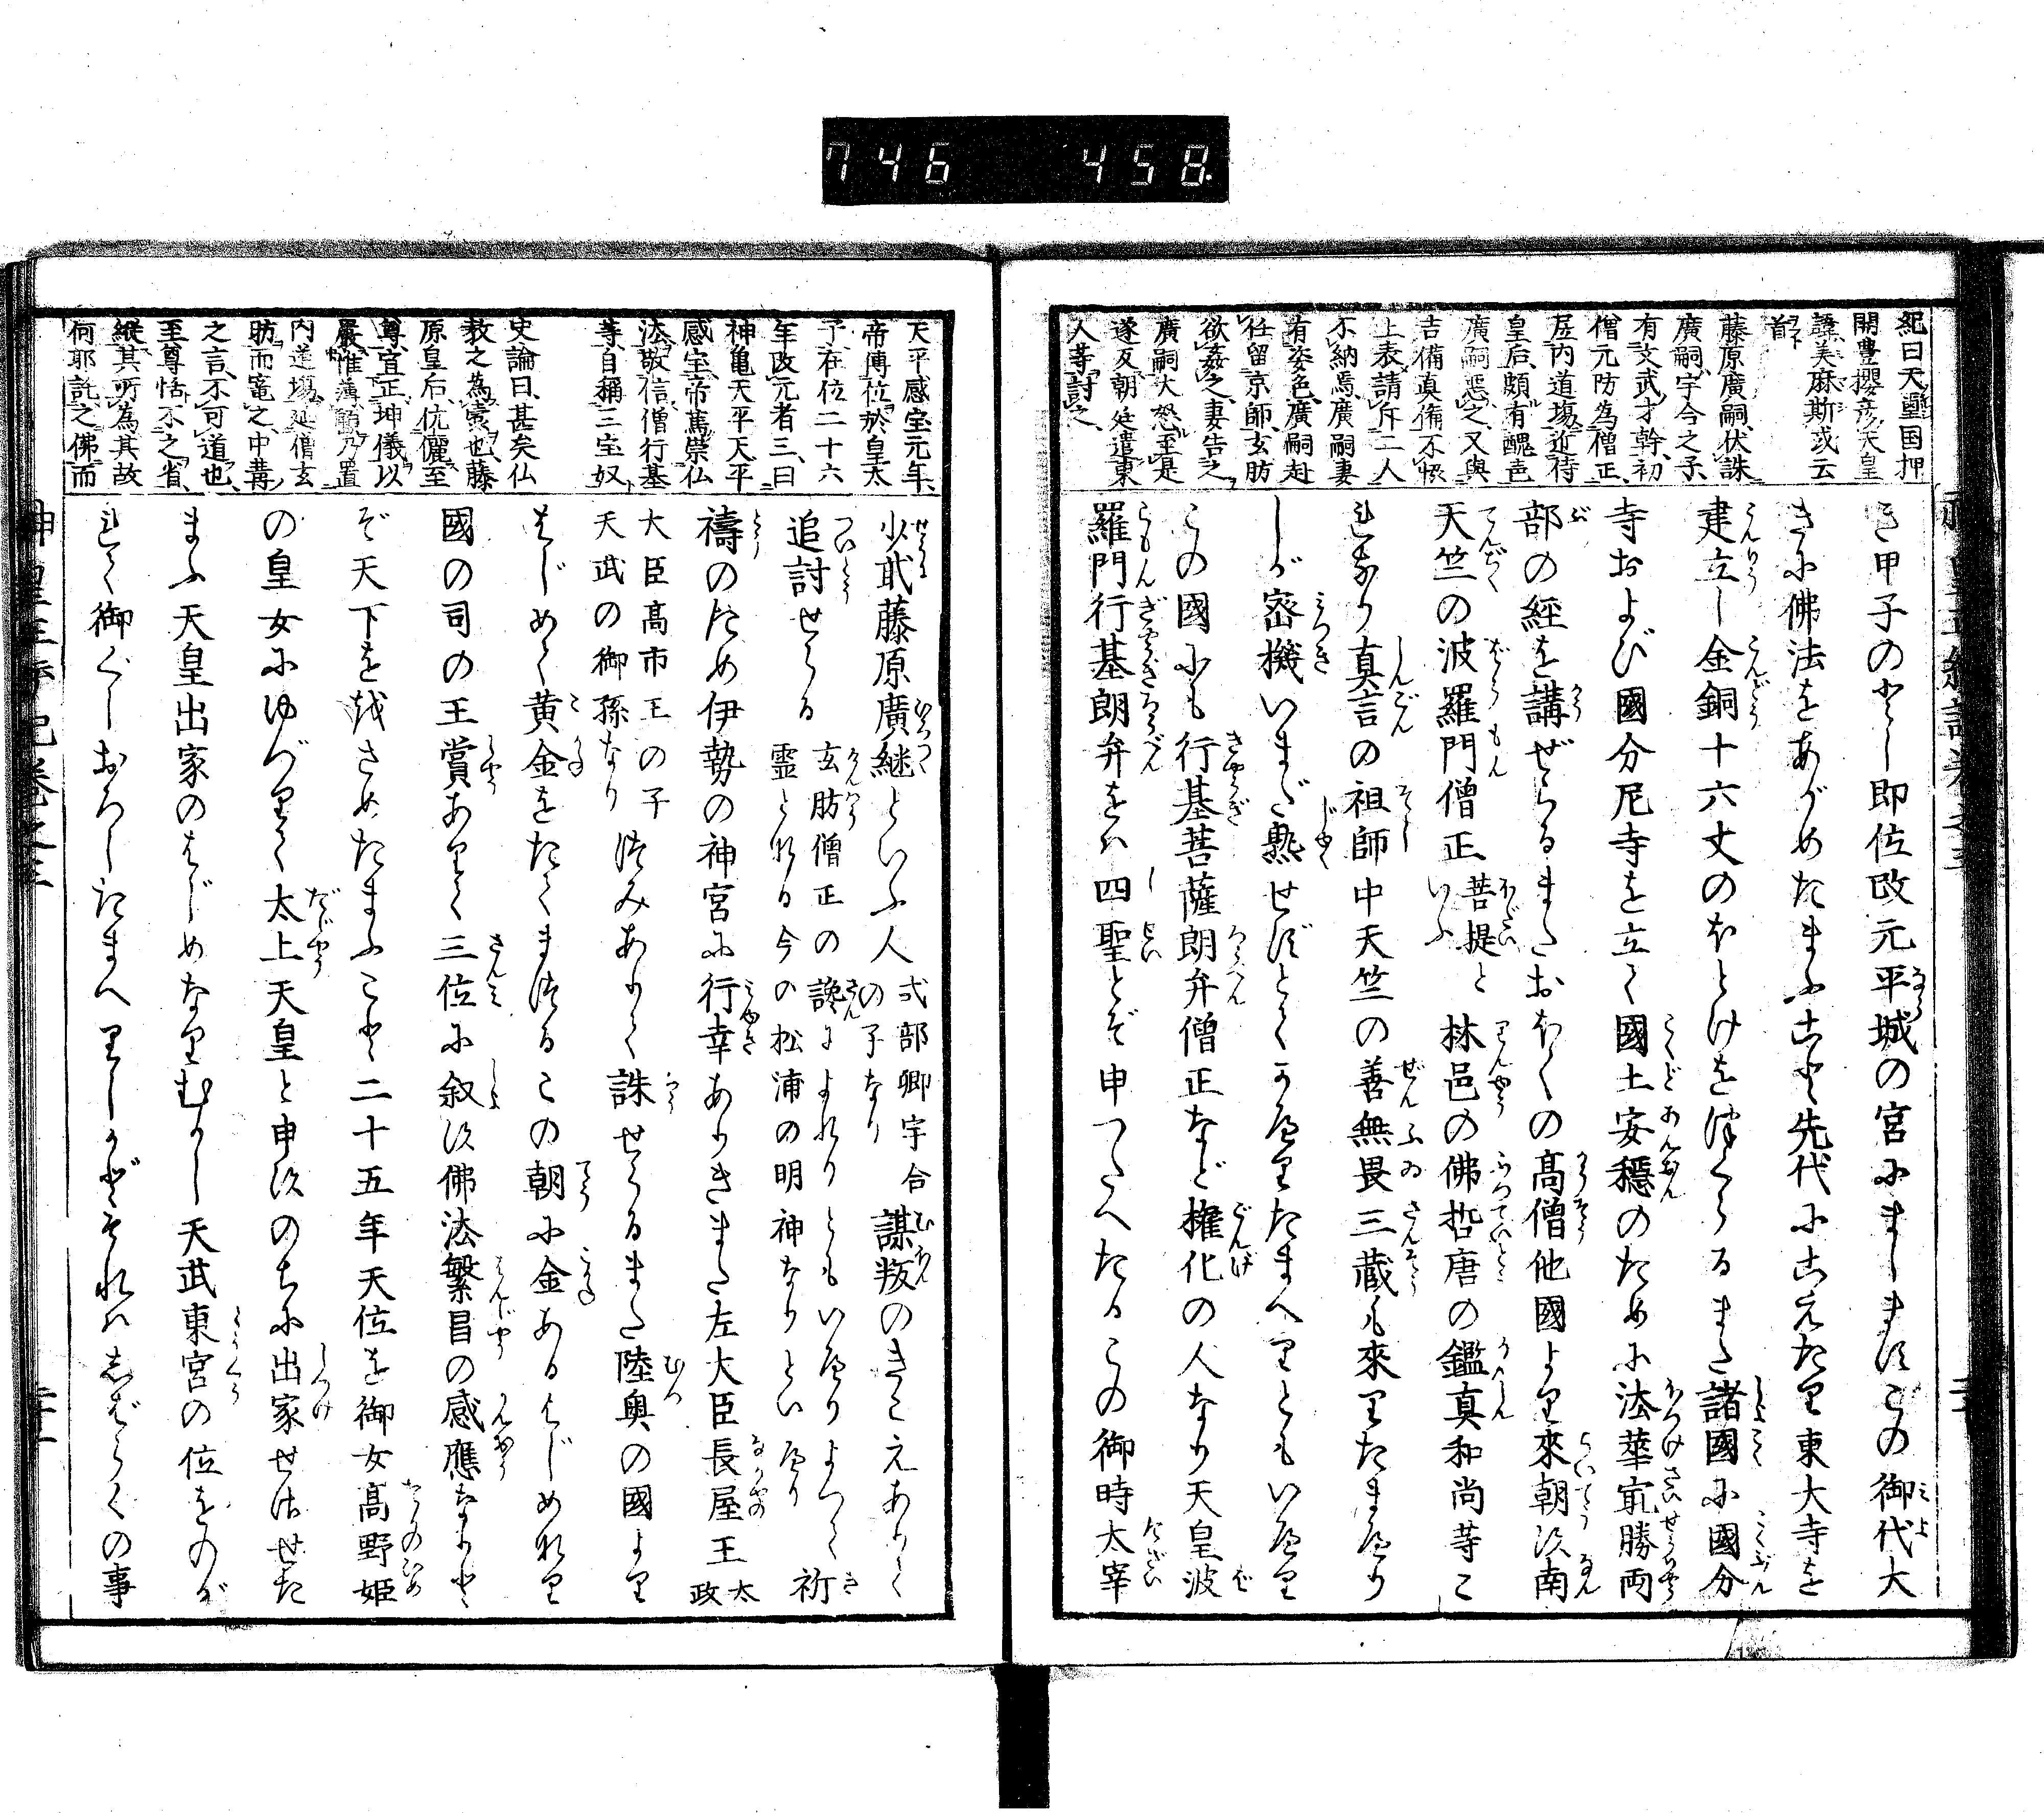 746 458
紀曰天璽国押
開豊櫻彦天皇
諱美麻斯或云
首
藤原廣嗣伏誅
廣嗣宇合之子
有文武才幹初
僧元防為僧正
居内道場近侍
皇后頗有醜声
廣嗣悪之又與
吉備真備不恢
上表請斥二人
不納焉廣嗣妻
有姿色廣嗣赴
任留京師玄肪
欲姦之妻告之
廣嗣大怒至是
遂反朝廷遣東
人等討之
き甲子のとし即位改元平城の宮にましますこの御代大
きに佛法をあがめたまふこと先代にこえたり東大寺を
建立し金銅十六丈のほとけをつくらるまた諸國に國分
寺および國分尼寺を立て國土安穏のために法華㝡勝両
部の經を講ぜらるまたおほくの高僧他國より來朝す南
天竺の波羅門僧正菩提といふ林邑の佛哲唐の鑑真和尚等こ
れなり真言の祖師中天竺の善無畏三蔵も來りたまへり
しが密機いまだ熟せずとてかへりたまへりともいへり
この國にも行基菩薩朗弁僧正など権化の人なり天皇波
羅門行基朗弁をは四聖とぞ申つたへたるこの御時太宰
天平感宝元年
帝傳位於皇太
子在位二十六
年改元者三曰
神亀天平天平
感宝帝篤崇仏
法敬信僧行基
等自稱三宝奴
史論曰甚矣仏
教之為害也藤
原皇后伉儷至
尊宜正坤儀以
嚴帷薄顧乃置
内道場延僧玄
肪而寵之中冓
之言不可道也
至尊恬不之省
縦其所為其故
何耶託之佛而
少貳藤原廣継といふ人式部卿宇合の子なり謀叛のきこえありて
追討せらる玄肪僧正の讒によれりともいへりよつて霊となる今の松浦の明神なりといへり祈
禱のため伊勢の神宮に行幸ありきまた左大臣長屋王太政
大臣髙市王の子天武の御孫なりつみありて誅せらるまた陸奥の國より
はじめて黄金をたてまつるこの朝に金あるはじめなり
國の司の王賞ありて三位に叙す佛法繁昌の感應なりと
ぞ天下を治さめたまふこと二十五年天位を御女高野姫
の皇女にゆづりて太上天皇と申すのちに出家せさせた
まふ天皇出家のはじめなりむかし天武東宮の位をのが
れて御ぐしおろしたまへりしかどそれはしばらくの事
神皇正統記巻之三